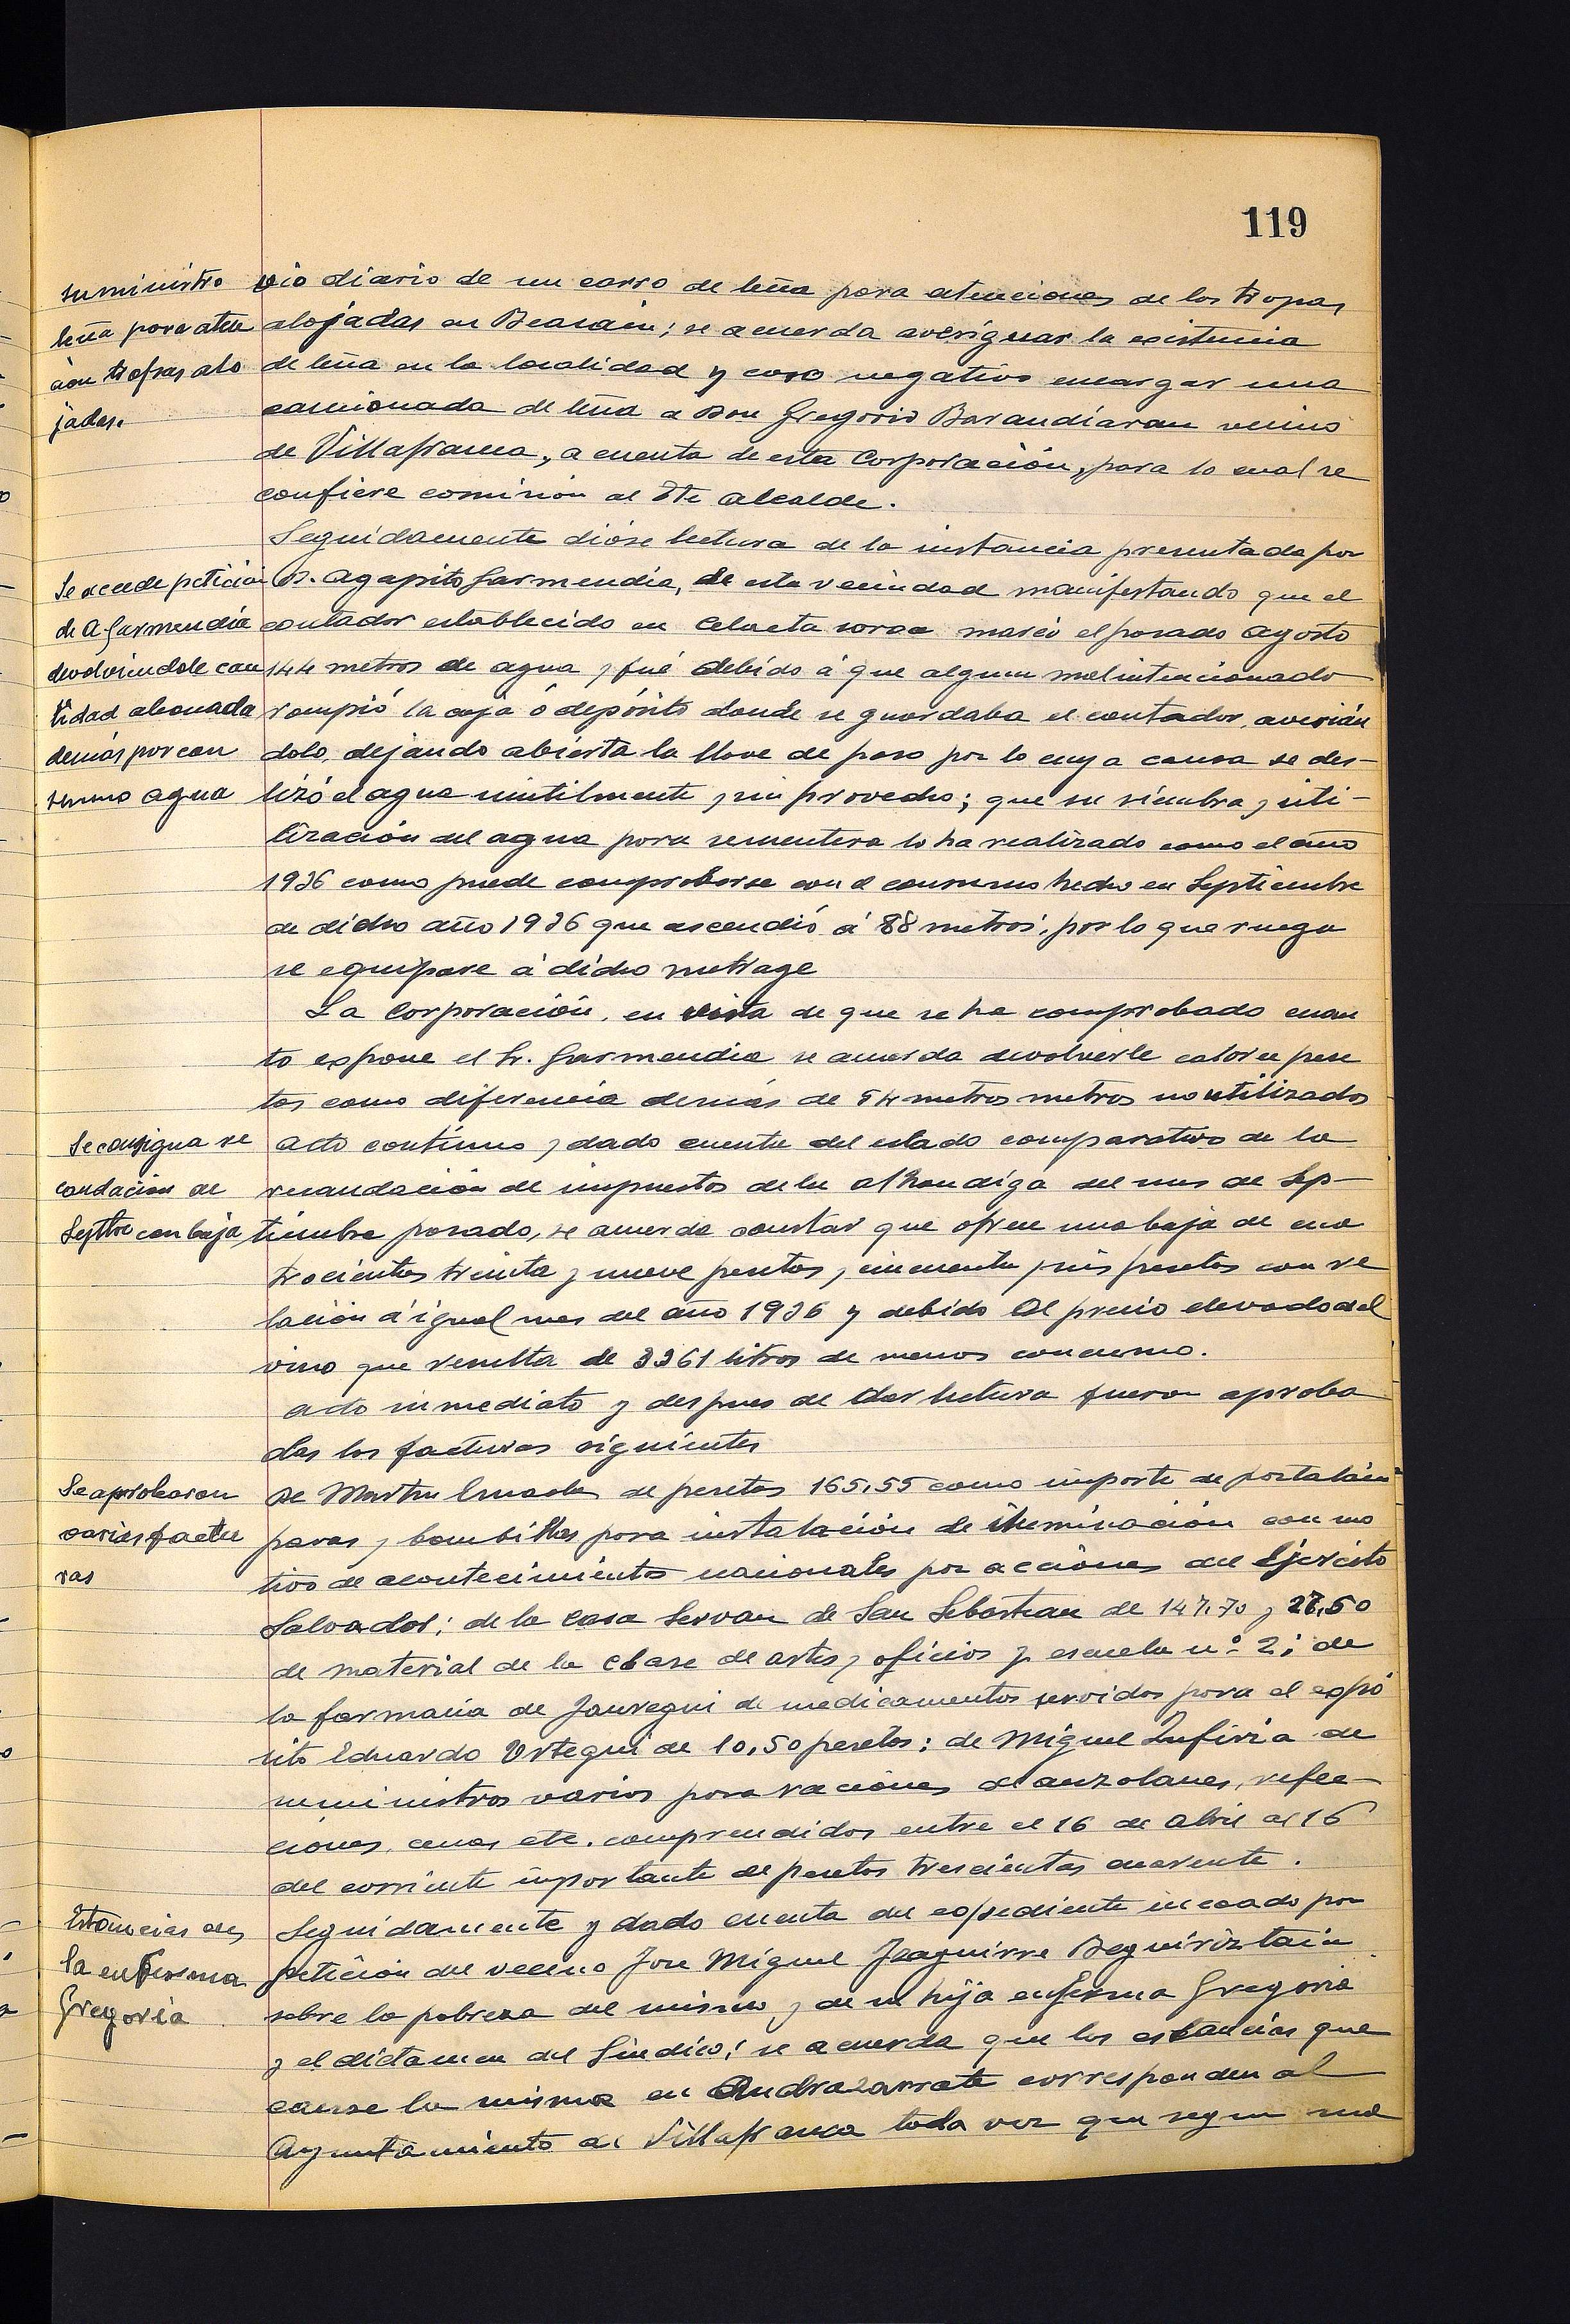 119
suministro
leña para aten
ción tropas alo
jadas.
vio diario de un carro de leña para atenciones de las tropas
alojadas en Beasain; se acuerda averiguar la existencia
de leña en la localidad y caso negativo encargar una
camionada de leña a Don Gregorio Barandiaran vecino
de Villafranca, a cuenta de esta Corporación, para lo cual se
confiere comisión al Tte Alcalde.
Seguidamente dióse lectura de la instancia presentada por
Se accede petición
de A Garmendia
devolviendole can
tidad abonada
demás por con
sumo agua
D. Agapito Garmendia, de esta vecindad manifestando que el
contador establecido en marcó el pasado Agosto
144 metros de agua y fué debido á que algun malintencionado
rompió la caja ó depósito donde se guardaba el contador, averián
dolo, dejando abierta la llave de paso por lo cuya causa se des-
lizó el agua inutilmente y sin provecho; que su siembra y uti-
lización del agua para sementera lo ha realizado como el año
1936 como puede comprobarse con el consumo hecho en Septiembre
de dicho año 1936 que ascendió á 88 metros; por lo que ruega
se equipare á dicho metrage
La Corporación, en vista de que se ha comprobado cuan
to expone el Sr. Garmendia se acuerda devolverle catorce pese
tas como diferencia demás de 54 metros metros no utilizados
Se consigna re
caudación de
Septbre con baja
Acto contínuo y dado cuenta del estado comparativo de la
recaudación de impuestos de la alhondiga del mes de Sep-
tiembre pasado, se acuerda constar que ofrece una baja de cua
trocientas treinta y nueve pesetas y cincuenta y seis pesetas con re
lación á igual mes del año 1936 y debido al precio elevado del
vino que resulta de 3361 litros de menos consumo.
Acto inmediato y despues de dar lectura fueron aproba
das las facturas siguientes
Se aprobaron
varias factu
ras
De Martin de pesetas 165,55 como importe de portalám
paras y bombillas para instalación de iluminación con mo
tivo de acontecimientos nacionales por acciones del Ejército
Salvador; de la casa Servan de San Sebastian de 147,70 y 27,50
de material de la clase de artes y oficios y escuela nº 2; de
la farmacia de Jauregui de medicamentos servidos para el expó
sito Eduardo Urtegui de 10,50 pesetas; de Miguel de
suministros varios para raciones de anzolanes, refec-
ciones, cenas etc. comprendidos entre el 16 de Abril al 16
del corriente importante de pesetas trescientas cuarenta.
Estancias de
la enferma
Gregoria
Seguidamente y dado cuenta del expediente incoado por
petición del vecino Jose Miguel Izaguirre Beguiriztain
sobre la pobreza del mismo y de su hija enferma Gregoria
y el dictamen del Síndico; se acuerda que las estancias que
cause la misma en Andrazarrate corresponden al
Ayuntamiento de Villafranca toda vez que segun una